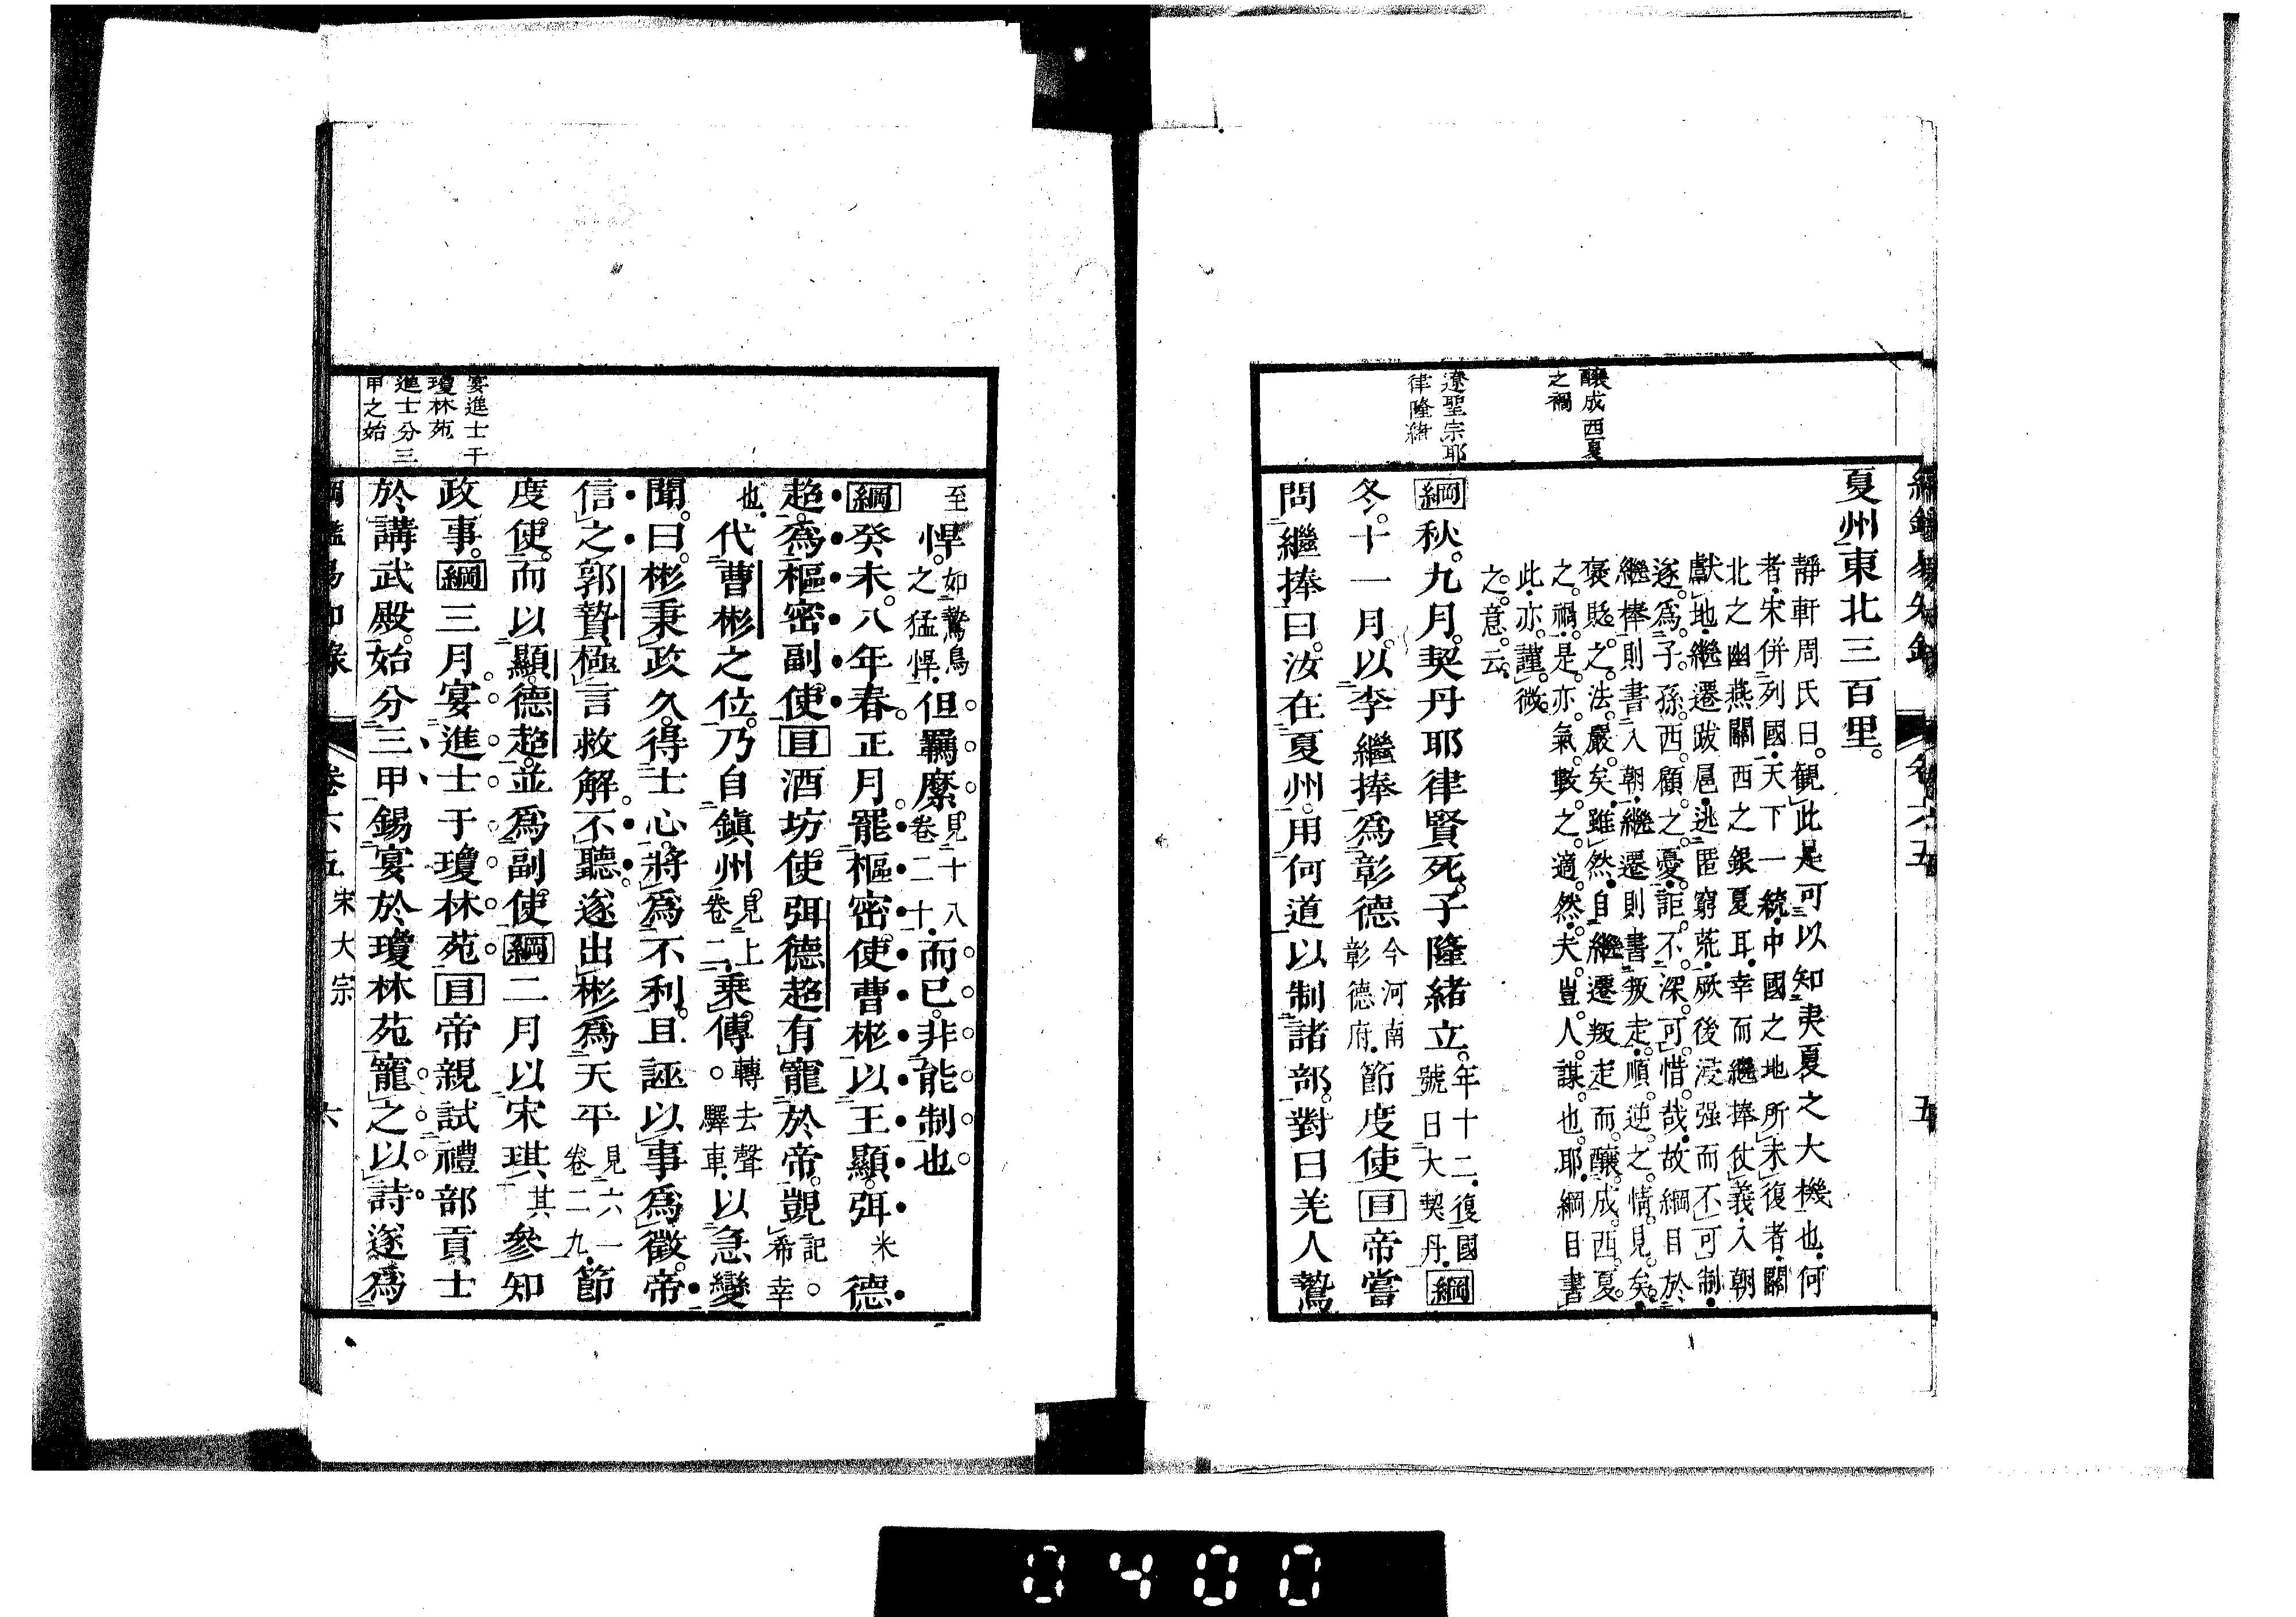 醸成西夏
之禍
遼聖宗耶
律隆緒
夏州東北三百里。
靜軒周氏曰。觀此是可以知夷夏之大機也。何
者。宋併列國。天下一統。中國之地所未復者。關
北之幽燕關西之銀夏耳。幸而繼捧仗義入朝
獻地。繼遷跋扈。逃匿窮荒。厥後浸强而不可制。
遂爲子孫西顧之憂。詎不深可惜哉。故綱目於
繼捧則書入朝。繼遷則書叛走。順逆之情見矣。
褒貶之法嚴矣。雖然。自繼遷叛走而釀成西夏
之禍。是亦氣數之適然。夫豈人謀也耶。綱目書
此。亦謹微
之意云。
綱秋。九月。契丹耶律賢死。子隆緒立。年十二。復國
號曰大契丹。綱
冬。十一月。以李繼捧爲彰德今河南
彰德府。節度使目帝嘗
問繼捧曰。汝在夏州。用何道以制諸部。對曰羌人鷙
宴進士于
瓊林苑
進士分三
甲之始
至悍。如鷙鳥
之猛悍。但羈縻見十八
卷二十。而已。非能制也
綱癸未。八年春。正月。罷樞密使曹彬以王顯。弭米德
超。爲樞密副使目酒坊使弭德超有寵於帝。覬記。
希幸
也。代曹彬之位。乃自鎭州。見上
卷二。乘傳轉去聲
。驛車。以急變
聞。曰。彬秉政久。得士心。將爲不利。且誣以事爲徵。帝
信之郭贄極言救解。不聽。遂出彬爲天平見六一
卷二九。節
度使。而以顯。德超。並爲副使。綱二月以宋琪其參知
政事。綱三月。宴進士于瓊林苑。目帝親試禮部貢士
於講武殿。始分三甲錫宴於瓊林苑寵之以詩遂爲
卷六五 宋太宗 六
0400